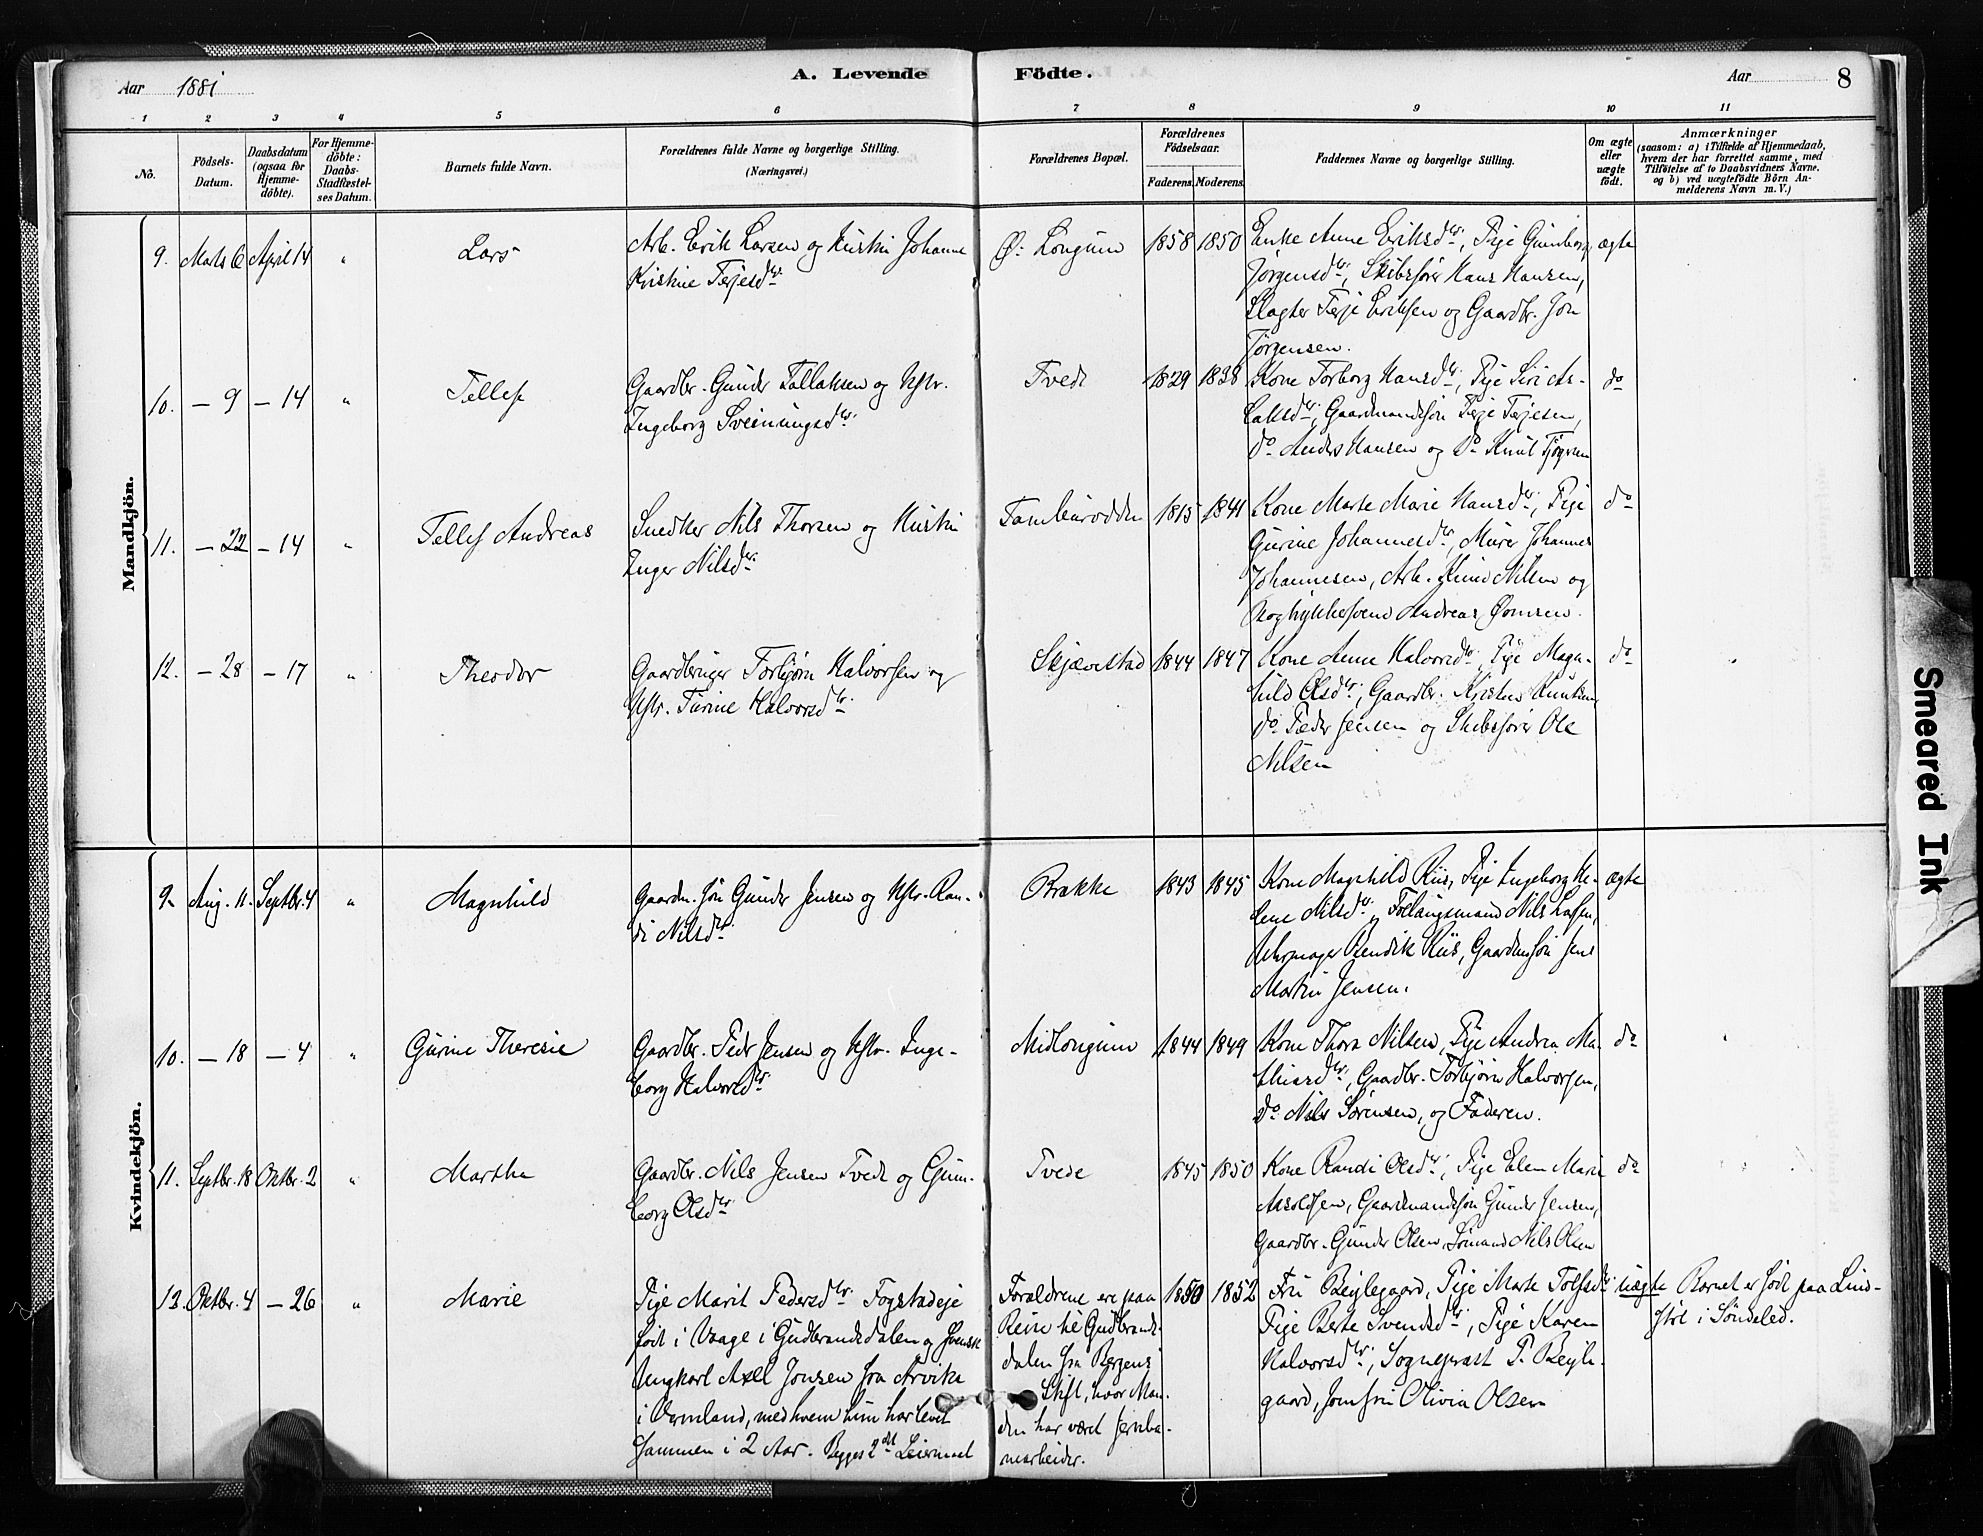 Aar 1881
A. Levende Födte.
Aar 8
1 2 3 4 5 6 7 8 9 10 11
No.
Födsels-Datum.
Daabsdatum (ogsaa for Hjemme-döbte).
For Hjemme-döbte: Daabs-Stadfæstel-ses Datum.
Barnets fulde Navn.
Forældrenes fulde Navne og borgerlige Stilling. (Næringsvei.)
Forældrenes Bopæl.
Forældrenes Födselsaar.
Faderens. Moderens.
Faddernes Navne og borgerlige Stilling.
Om ægte eller uægte födt.
Anmærkninger
(saasom: a) i Tilfælde af Hjemmedaab,
hvem der har forrettet samme, med
Tilföielse af to Daabsvidners Navne.
og b) ved uægtefödte Börn An-
melderens Navn m. V.)
Mandkjön.
9. Marts 6 April 14 " Lars
Arb. Erik Larsen og Hustru Johanne
Kristine Terjesdtr.
Ø. Longum 1858 1850
Enke Anne Eriksdtr, Pige Gunborg
Jørgensdtr, Skibsfører Hans Hansen,
Slagter Terje Eriksen og Gaardbr. Jon
Jørgensen.
ægte
10. — 9 — 14 " Tellef
Gaardbr. Gunder Tallaksen og Hstr.
Ingeborg Sveinungsdtr.
Tvede 1829 1838
Kone Torborg Hansdtr, Pige Siri As-
laksdtr, Gaardmandsøn Terje Terjesen,
do Anders Hansen og do Knut
do
11. — 22 — 14 " Tellef Andreas
Snedker Nils Thorsen og Hustru
Inger Nilsdtr.
1815 1841
Kone Marte Marie Hansdtr, Pige
Gurine Johannesdtr, Murer Johannes
Johannesen, Arb. Nilsen og
Andreas
do
12. — 28 — 17 " Theodor
Gaardbruger Torbjørn Halvorsen og
Hstr. Turine Halvorsdtr.
Skjævestad 1844 1847
Kone Anne Halvorsdtr, Pige Magn-
hild Olsdtr, Gaardbr. Kjøsten Knutsen
do Peder Jensen og Skibsfører Ole
Nilsen
do
Kvindekjön.
9. Aug. 11. Septbr. 4 " Magnhild
Gaardm. søn Gunder Jensen og Hstr. Ran-
di Nilsdtr.
Brække 1843 1845
Kone Magnhild Riis, Pige Ingeborg He-
lene Nilsdtr, Nils
Uhrmager Bendik Riis, Gaardmsøn Jens
Martin Jensen.
ægte
10. — 18 — 4 " Gurine Theresie
Gaardbr. Peder Jensen og Hstr. Inge-
borg Halvorsdtr.
Midlongum 1844 1849
Kone Thora Nilsen, Pige Andrea Ma-
thiasdtr, Gaardbr. Torbjørn Halvorsen,
do Nils Sørensen, og Faderen.
do
11. Septbr. 18 Oktbr. 2 " Martha
Gaardbr. Nils Jensen Tvede og Gun-
borg Olsdtr
Tvede 1845 1850
Kone Randi Olsdtr, Pige Elen Marie
Gaardmandsøn Gunder Jensen,
Gaardbr. Gunder Olsen, Sømand Nils Olsen
do
12. Oktbr. 4 — 26 " Marie
Pige Marit Pedersdtr. Fogstadeje
født i Vaage i Gudbrandsdalen og svensk
Ungkarl Axel Jonsen fra Arvika
i Vermland, med hvem hun har levet
sammen i 2 Aar. Begges 2det Leiermaal
Forældrene ere paa
Reise til Gudbrands-
dalen fra Bergens
Stift, hvor Man-
den har været Jernba-
nearbeider.
1850 1852
Fru Beylegaard, Pige Marte Tolfsdtr
Pige Berte Svendsdtr, Pige Karen
Halvorsdtr, Sogneprest P. Beyle-
gaard, Jomfru Olivia Olsen
uægte
Barnet er født paa Lind-
støl i Søndeled.
Smeared Ink